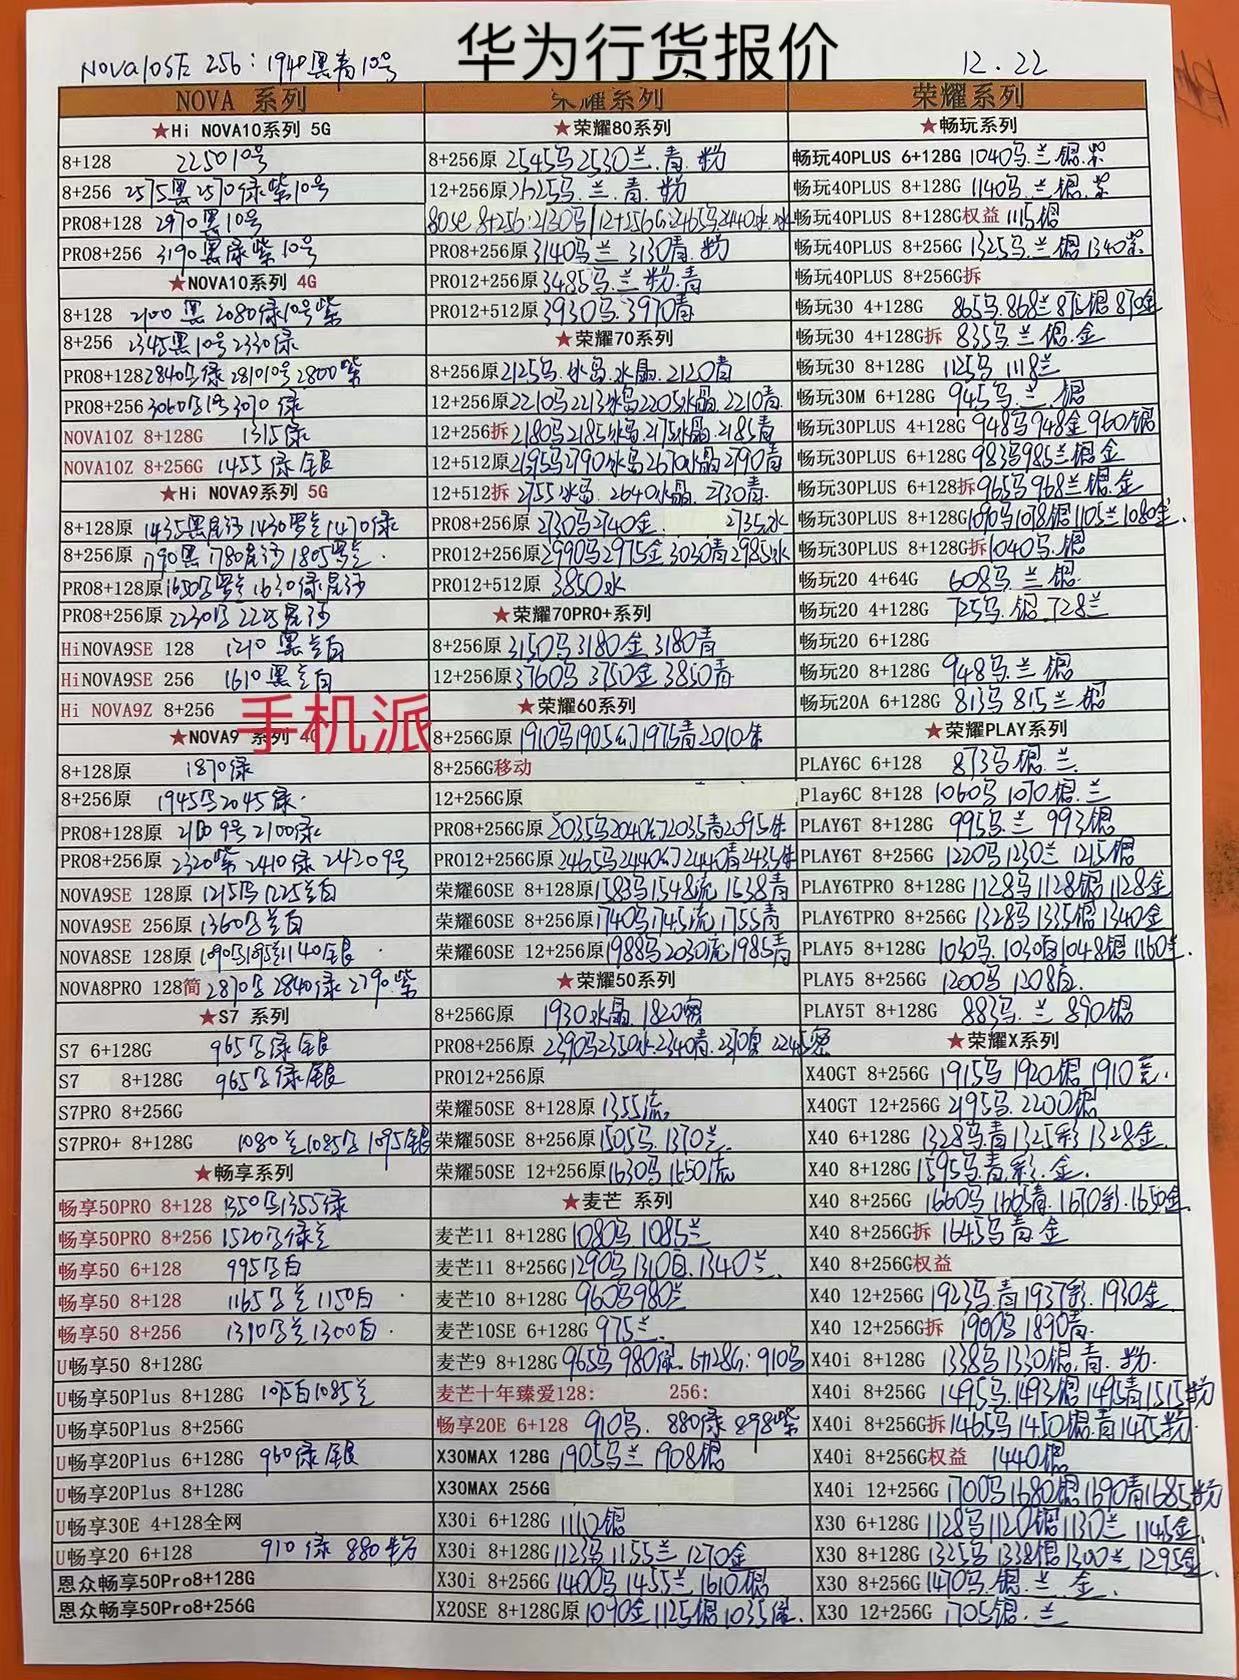 华为行货报价
NOVA10SE 256：1940黑青10号
12.22
NOVA 系列
★Hi NOVA10系列 5G
8+128 2250 10号
8+256 2575黑2570绿紫10号
PRO8+128 2970黑10号
PRO8+256 3190黑绿紫10号
★NOVA10系列 4G
8+128 2100黑2080绿10号紫
8+256 2345黑10号2330绿
PRO8+128 2840 绿2810 10号2800紫
PRO8+256 3070 绿
NOVA10Z 8+128G 1315绿
NOVA10Z 8+256G 1455绿银
★Hi NOVA9系列 5G
8+128原 1435黑 1430 1470绿
8+256原 1790黑 1780 1805
PRO8+128原 1650 1630绿
PRO8+256原 2230 2225
HiNOVA9SE 128 1210黑兰白
HiNOVA9SE 256 1610黑兰白
Hi NOVA9Z 8+256
手机派
★NOVA9 系列 4G
8+128原 1870绿
8+256原 1945马2045绿
PRO8+128原 9号2100绿
PRO8+256原 2320紫2410绿2420 9号
NOVA9SE 128原 1215马1225兰白
NOVA9SE 256原 1360马兰白
NOVA8SE 128原 1140银
NOVA8PRO 128简 2870马2840绿2790紫
★S7 系列
S7 6+128G 965马绿银
S7 8+128G 965马绿银
S7PRO 8+256G
S7PRO+ 8+128G 1080兰1085马1095银
★畅享系列
畅享50PRO 8+128 1350马1355绿
畅享50PRO 8+256 1520马绿兰
畅享50 6+128 995马白
畅享50 8+128 1165马兰1150白
畅享50 8+256 1310马兰1300白
U畅享50 8+128G
U畅享50Plus 8+128G 1075白1085兰
U畅享50Plus 8+256G
U畅享20Plus 6+128G 960绿银
U畅享20Plus 8+128G
U畅享30E 4+128全网
U畅享20 6+128 910绿 880粉
恩众畅享50Pro8+128G
恩众畅享50Pro8+256G
荣耀系列
★荣耀80系列
8+256原 2545马2530兰.青.粉
12+256原 2625马.兰.青.粉
80SE 8+256:2130马/12+256G:2465马2440水
PRO8+256原 3140马兰 3130青.粉
PRO12+256原 3485马.兰粉.青
PRO12+512原 3930马.3970青
★荣耀70系列
8+256原 2125马.冰岛.水晶.2120青
12+256原 2210马2213冰岛2205水晶.2210青
12+256拆 2180马2185冰岛.2175水晶.2185青
12+512原 2790冰岛2670水晶2790青
12+512拆 2755冰岛.2640水晶.2730青
PRO8+256原 2730马2740金. 2735水
PRO12+256原 2990马2975金3030青2985水
PRO12+512原 3850水
★荣耀70PRO+系列
8+256原 3150马3180金3180青
12+256原 3760马3750金3850青
★荣耀60系列
8+256G原 1910马1905幻1975青2010朱
8+256G移动
12+256G原
PRO8+256G原 2035马2040幻2035青2095朱
PRO12+256G原 2465马2440幻2440青2435朱
荣耀60SE 8+128原 1583马1548流1638青
荣耀60SE 8+256原 1740马1745流1755青
荣耀60SE 12+256原 1988马2030流1985青
★荣耀50系列
8+256G原 1930水晶.1820
PRO8+256原 2390马2350水.2340青.2370夏
PRO12+256原
荣耀50SE 8+128原 1355流
荣耀50SE 8+256原 1505马.1370兰
荣耀50SE 12+256原 1630马1650流
★麦芒 系列
麦芒11 8+128G 1080马.1085兰
麦芒11 8+256G 1290马1310白.1340兰
麦芒10 8+128G 960马980兰
麦芒10SE 6+128G 975兰
麦芒9 8+128G 965马980绿.6+128G:910马
麦芒十年臻爱128: 256:
畅享20E 6+128 910马.880绿898紫
X30MAX 128G 1905马兰1908银
X30MAX 256G
X30i 6+128G 1110银
X30i 8+128G 1123马1155兰1270金
X30i 8+256G 1400马1455兰1610银
X20SE 8+128G原 1090金1125银1035
荣耀系列
★畅玩系列
畅玩40PLUS 6+128G 1040马.兰银.紫
畅玩40PLUS 8+128G 1140马.兰银.紫
畅玩40PLUS 8+128G权益 1115银
畅玩40PLUS 8+256G 1325马.兰银1340紫
畅玩40PLUS 8+256G拆
畅玩30 4+128G 865马.868兰875银870金
畅玩30 4+128G拆 835马兰银.金
畅玩30 8+128G 1125马 1118兰
畅玩30M 6+128G 945马.兰.银
畅玩30PLUS 4+128G 948马948金960银
畅玩30PLUS 6+128G 983马985兰银金
畅玩30PLUS 6+128拆 965马968兰银.金
畅玩30PLUS 8+128G 1090马1078银1105兰1080金
畅玩30PLUS 8+128G拆 1040马.银
畅玩20 4+64G 608马兰银
畅玩20 4+128G 725马.银.728兰
畅玩20 6+128G
畅玩20 8+128G 948马.兰银
畅玩20A 6+128G 813马815兰银
★荣耀PLAY系列
PLAY6C 6+128 873马银.兰
Play6C 8+128 1060马1070银.兰
PLAY6T 8+128G 995马.兰 993银
PLAY6T 8+256G 1220马1230兰 1215银
PLAY6TPRO 8+128G 1128马1128银1128金
PLAY6TPRO 8+256G 1328马1335银1340金
PLAY5 8+128G 1030马.1030白1048银1160兰
PLAY5 8+256G 1200马1208白
PLAY5T 8+128G 883马.兰 890银
★荣耀X系列
X40GT 8+256G 1915马1920银1910竞
X40GT 12+256G 2195马.2200银
X40 6+128G 1328马.青1325彩1328金
X40 8+128G 1595马青彩.金
X40 8+256G 1660马1665青.1670彩.1650金
X40 8+256G拆 1645马青金
X40 8+256G权益
X40 12+256G 1923马.青1937彩.1930金
X40 12+256G拆 1900马1890青
X40i 8+128G 1338马1330银.青.粉
X40i 8+256G 1495马.1493银1495青1515粉
X40i 8+256G拆 1465马1450银.青1475粉
X40i 8+256G权益 1440银
X40i 12+256G 1700马1680银1690青1685粉
X30 6+128G 1128马1120银1130兰1145金
X30 8+128G 1325马1338银1300兰1295金
X30 8+256G 1470马.银.兰 金
X30 12+256G 1705银.兰